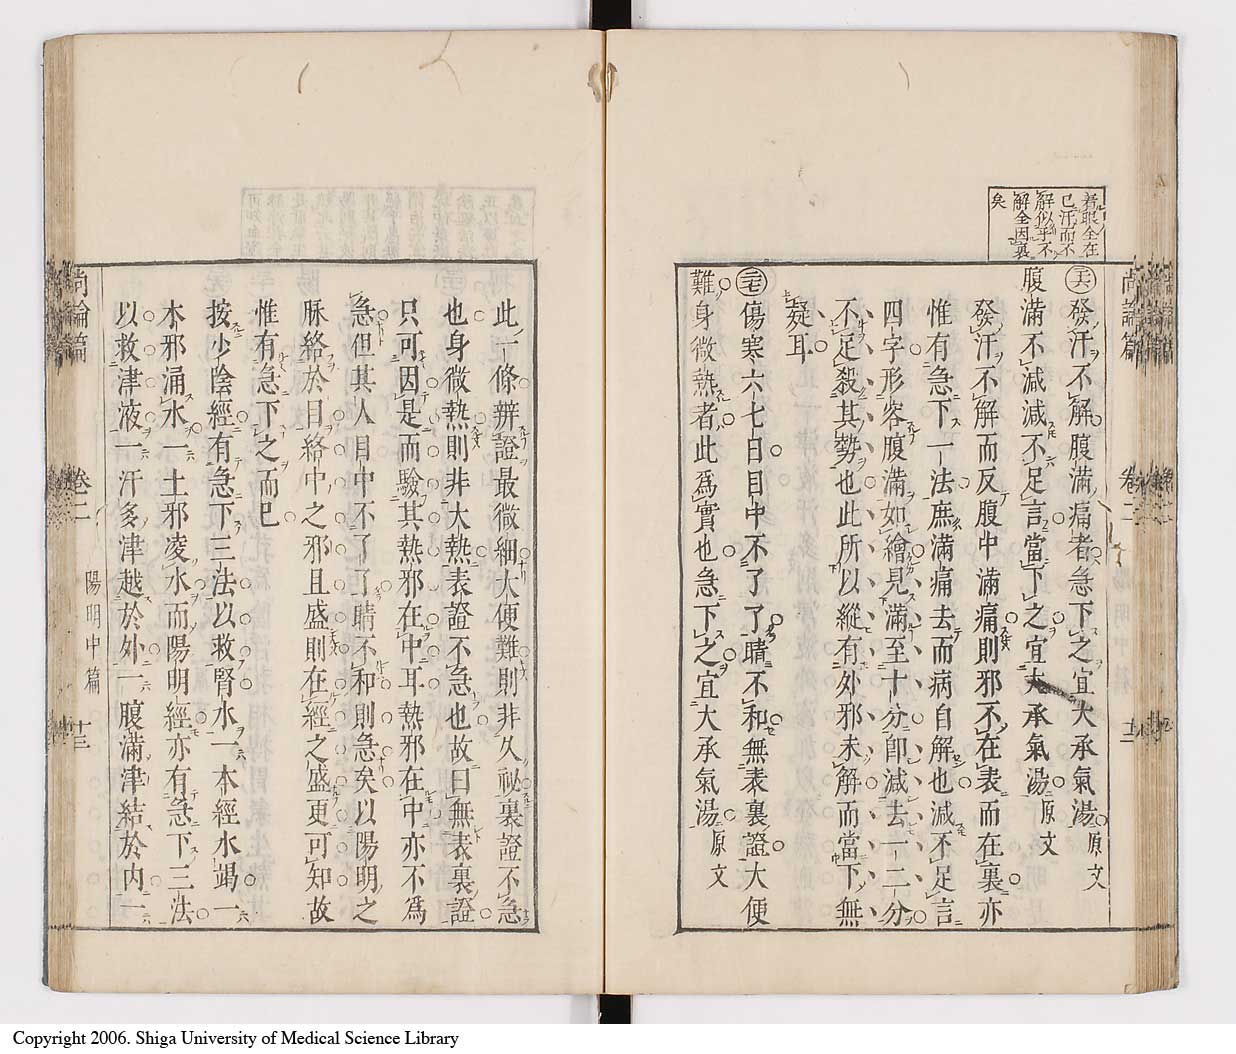 着眼全在
已汗而不
解似乎不
解全因裏
矣
㊱發汗不解腹滿痛者急下之宜大承氣湯原文
腹滿不減減不足言當下之宜大承氣湯原文
發汗不解而反腹中滿痛則邪不在表而在裏亦
惟有急下一法庶滿痛去而病自解也減不足言
四字形容腹滿如繪見滿至十分卽減去一二分
不足殺其勢也此所以縱有外邪未解而當下無
疑耳
㊲傷寒六七日目中不了了睛不和無表裏證大便
難身微熱者此爲實也急下之宜大承氣湯原文
尚論篇 卷二 陽明中篇 十三
此一條辨證最微細大便難則非久祕裏證不急
也身微熱則非大熱表證不急也故曰無表裏證
只可因是而驗其熱邪在中耳熱邪在中亦不爲
急但其人目中不了了睛不和則急矣以陽明之
脉絡於目絡中之邪且盛則在經之盛更可知故
惟有急下之而已
按少陰經有急下三法以救腎水一本經水竭一
木邪涌水一土邪凌水而陽明經亦有急下三法
以救津液一汗多津越於外一腹滿津結於內一
Copyright 2006. Shiga University of Medical Science Library